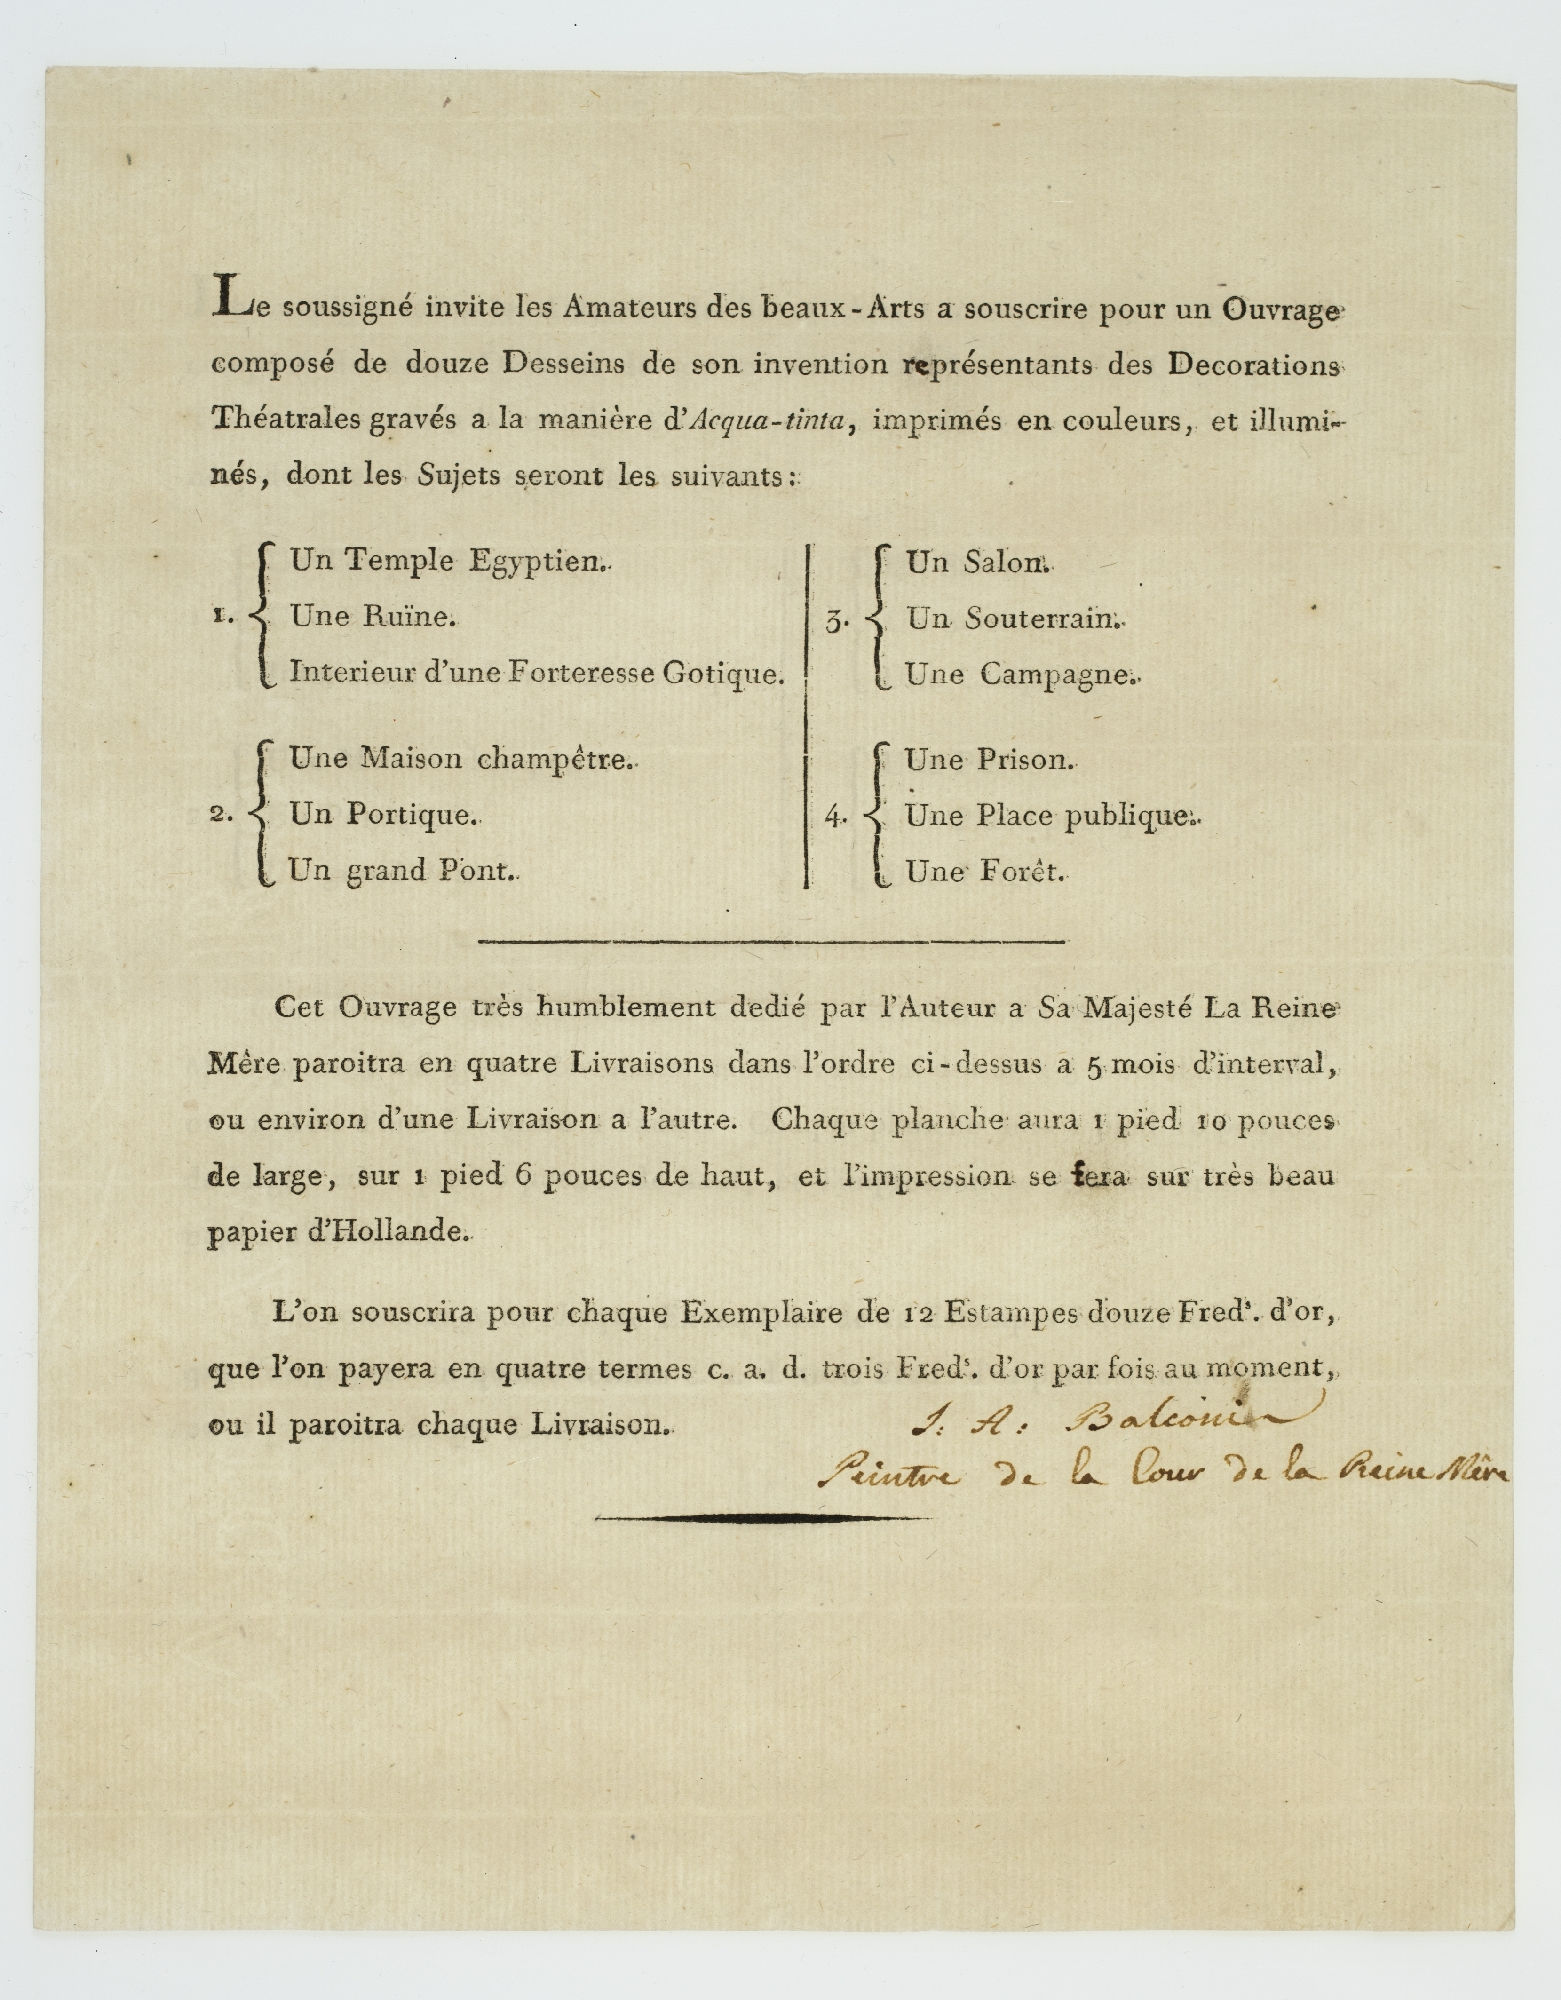 Le soussigné invite les Amateurs des beaux-Arts a souscrire pour un Ouvrage
composé de douze Desseins de son invention représentants des Decorations
Théatrales gravés a la manière d'Acqua-tinta, imprimés en couleurs, et illumi-
nés, dont les Sujets seront les suivants:
1.
Un Temple Egyptien.
Une Ruïne.
Interieur d'une Forteresse Gotique.
2.
Une Maison champêtre.
Un Portique.
Un grand Pont.
3.
Un Salon.
Un Souterrain.
Une Campagne.
4.
Une Prison.
Une Place publique.
Une Forêt.
Cet Ouvrage très humblement dedié par l'Auteur a Sa Majesté La Reine
Mêre paroitra en quatre Livraisons dans l'ordre ci-dessus a 5 mois d'interval,
ou environ d'une Livraison a l'autre. Chaque planche aura 1 pied 10 pouces
de large, sur 1 pied 6 pouces de haut, et l'impression se fera sur très beau
papier d'Hollande.
L'on souscrira pour chaque Exemplaire de 12 Estampes douze Freds. d'or,
que l'on payera en quatre termes c. a. d. trois Freds. d'or par fois au moment,
ou il paroitra chaque Livraison.
J: A:
Peintre de la Cour de la Reine Mêre